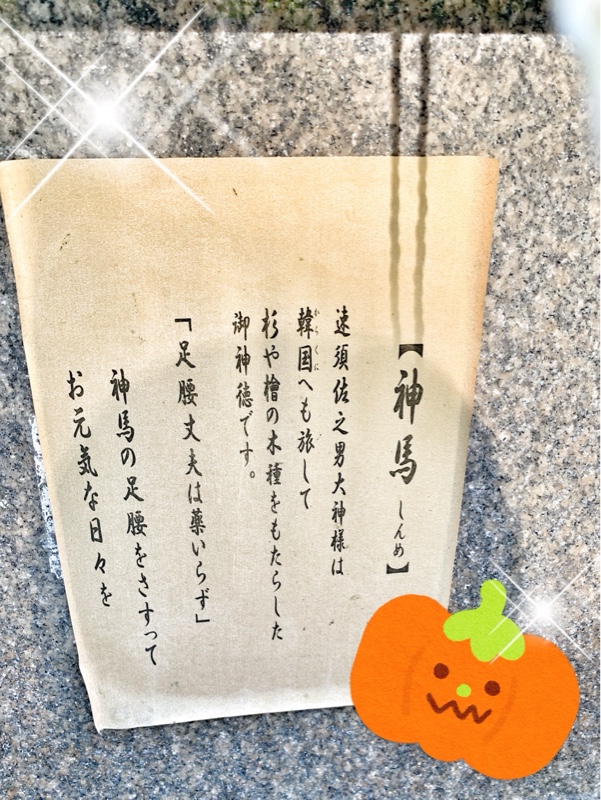 【神馬 しんめ】
速須佐之男大神様は
韓国へも旅して
からくに
杉や檜の木種をもたらした
御神徳です。
「足腰丈夫は薬いらず」
神馬の足腰をさすって
お元気な日々を